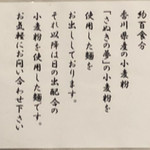 約百食分
香川県産の小麦粉
「さぬきの夢」の小麦粉を
使用した麺を
お出ししております。
それ以降は日の出配合の
小麦粉を使用した麺です。
お気軽にお問い合わせ下さい